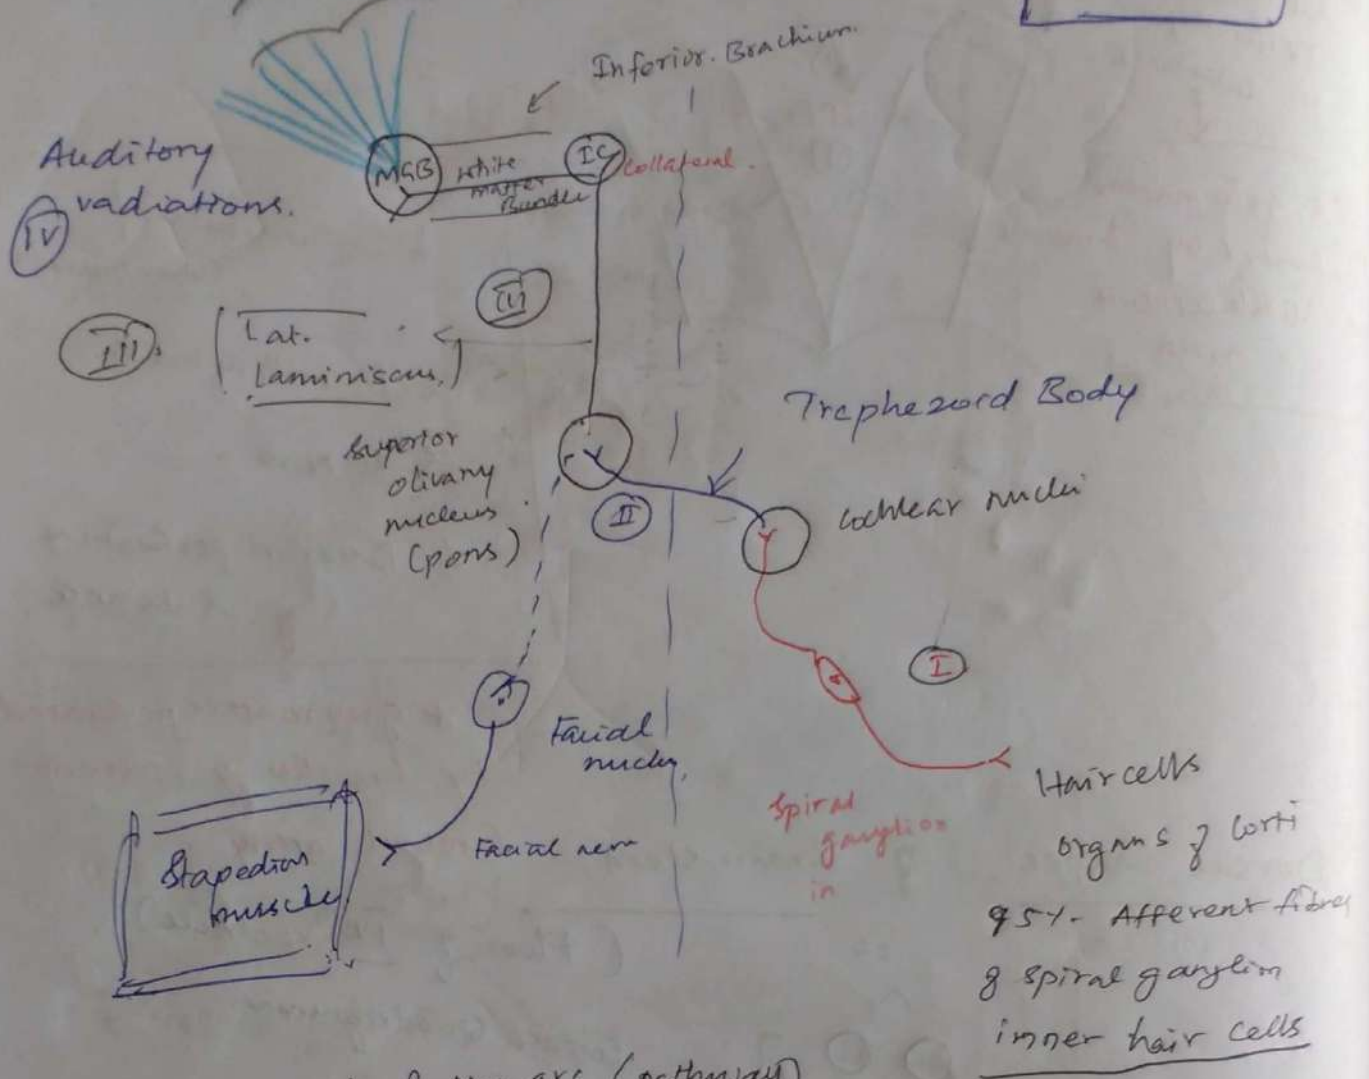 Inferior. Brachium.
Auditory
radiations.
IV
MGB
white
matter
Bundle
IC
Collateral.
III
III.
Lat.
Laminiscus,
Traphezoid Body
Superior
olivary
nucleus.
(pons)
II
Cochlear nuclei
I
Facial
nucleus,
Facial nerv
Stapedius
muscle
Spiral
ganglion
in
Hair cells
organs of Corti
95%. Afferent fibres
of spiral ganglion
inner hair cells
arc (pathway)